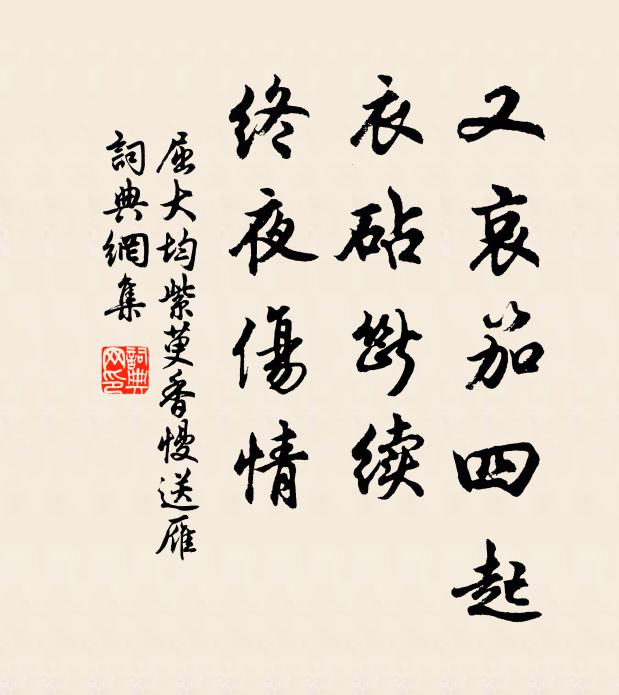 又哀笳四起
衣砧断续
终夜傷情
屈大均紫萸香慢送雁
詞典網集
詞典网印